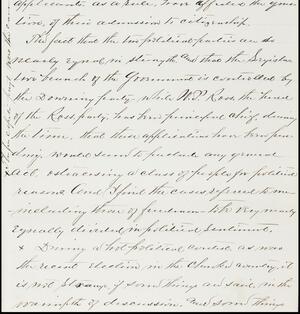 applicants as a rule, have affected the question, of their admission to citizenship.
The fact that the two political parties are so
nearly equal in strength and that the Legislative
branch of the Government is controlled by
the Downing party, while W.P. Ross, the head
of the Ross party, has been principal chief, during
the time, that these applications have been pending,
would seem to preclude any general
ostracising a class of people for political
reasons. And I find the cases referred to me
including those of freedmen
equally divided in political sentiment.
x During a hot political contest as was
the recent election in the Cherokee country, it
is not strange if some things are said, in the
warmth of discussion, and some things